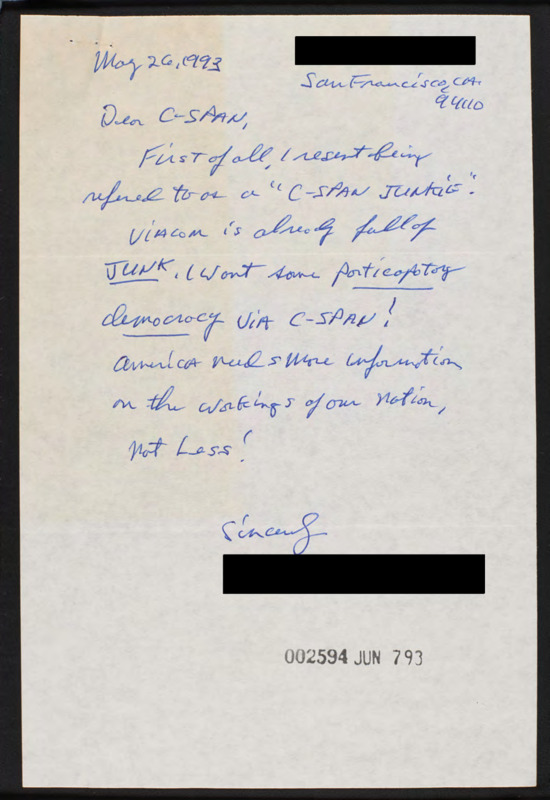 May 26, 1993
San Francisco, CA.
94110
Dear C-SPAN,
First of all, I resent being
refered to as a "C-SPAN JUNKIE".
Viacom is already full of
JUNK. I want some participatory
democracy VIA C-SPAN!
America needs more information
on the workings of our nation,
not Less!
Sincerely
002594 JUN 793